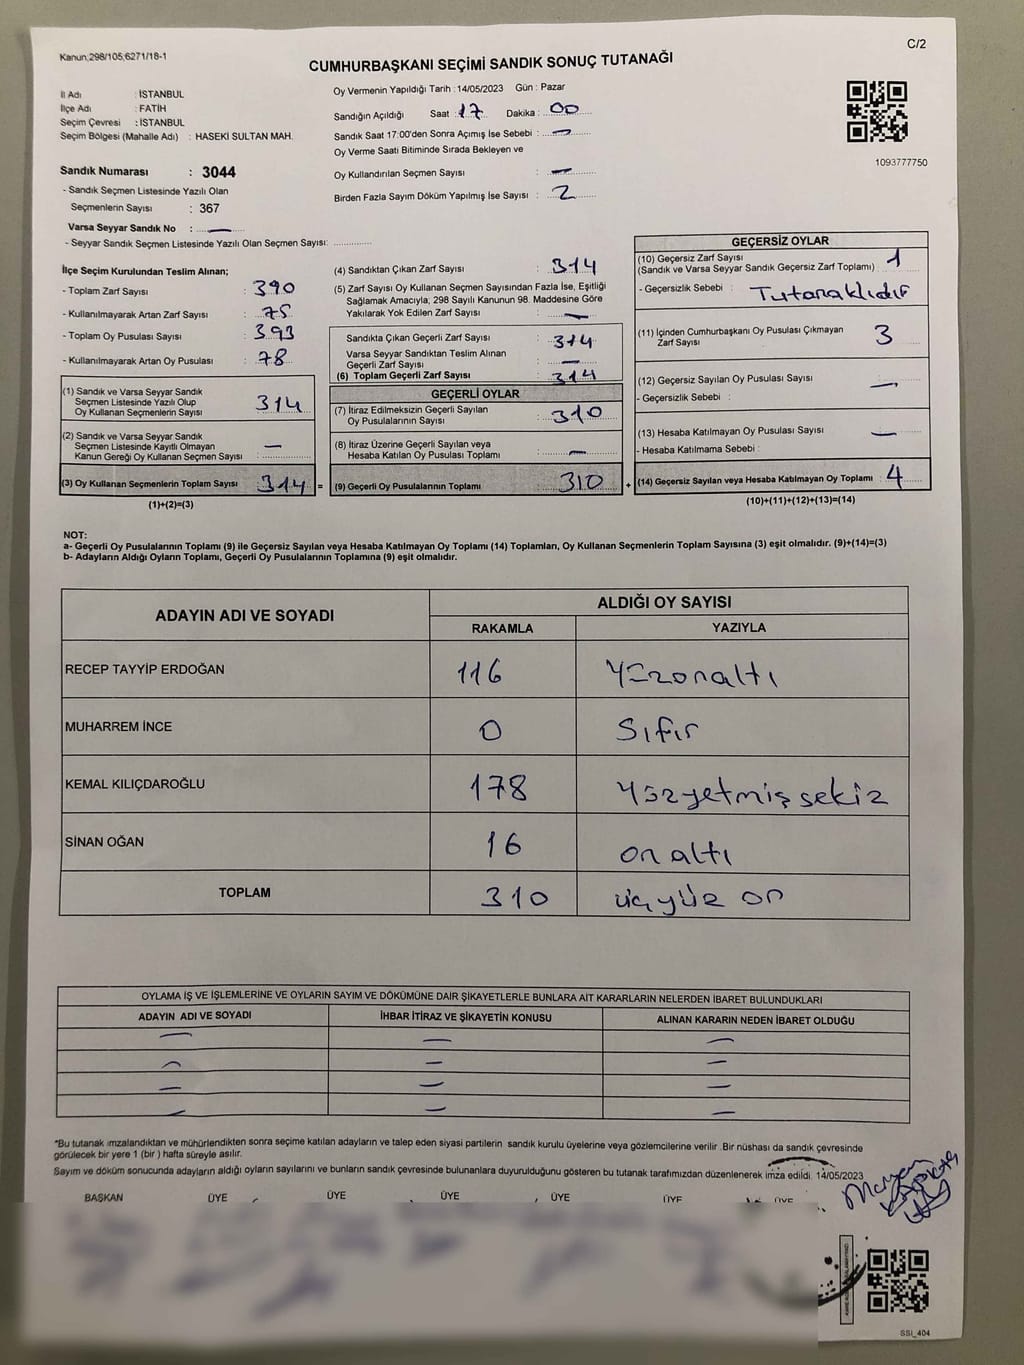 Kanun:298/105;6271/18-1
C/2
CUMHURBAŞKANI SEÇİMİ SANDIK SONUÇ TUTANAĞI
İl Adı : İSTANBUL
İlçe Adı : FATİH
Seçim Çevresi : İSTANBUL
Seçim Bölgesi (Mahalle Adı) : HASEKİ SULTAN MAH.
Oy Vermenin Yapıldığı Tarih : 14/05/2023 Gün : Pazar
Sandığın Açıldığı Saat : 17 Dakika : 00
Sandık Saat 17:00'den Sonra Açımış İse Sebebi : —
Oy Verme Saati Bitiminde Sırada Bekleyen ve
Oy Kullandırılan Seçmen Sayısı : —
Birden Fazla Sayım Döküm Yapılmış İse Sayısı : 2
1093777750
Sandık Numarası : 3044
- Sandık Seçmen Listesinde Yazılı Olan
Seçmenlerin Sayısı : 367
Varsa Seyyar Sandık No : —
- Seyyar Sandık Seçmen Listesinde Yazılı Olan Seçmen Sayısı: ............
İlçe Seçim Kurulundan Teslim Alınan;
- Toplam Zarf Sayısı : 390
- Kullanılmayarak Artan Zarf Sayısı : 75
- Toplam Oy Pusulası Sayısı : 393
- Kullanılmayarak Artan Oy Pusulası : 78
(1) Sandık ve Varsa Seyyar Sandık
Seçmen Listesinde Yazılı Olup
Oy Kullanan Seçmenlerin Sayısı : 314
(2) Sandık ve Varsa Seyyar Sandık
Seçmen Listesinde Kayıtlı Olmayan
Kanun Gereği Oy Kullanan Seçmen Sayısı : —
(3) Oy Kullanan Seçmenlerin Toplam Sayısı : 314 =
(1)+(2)=(3)
(4) Sandıktan Çıkan Zarf Sayısı : 314
(5) Zarf Sayısı Oy Kullanan Seçmen Sayısından Fazla İse, Eşitliği
Sağlamak Amacıyla; 298 Sayılı Kanunun 98. Maddesine Göre
Yakılarak Yok Edilen Zarf Sayısı : —
Sandıkta Çıkan Geçerli Zarf Sayısı : 314
Varsa Seyyar Sandıktan Teslim Alınan
Geçerli Zarf Sayısı : —
(6) Toplam Geçerli Zarf Sayısı : 314
GEÇERLİ OYLAR
(7) İtiraz Edilmeksizin Geçerli Sayılan
Oy Pusulalarının Sayısı : 310
(8) İtiraz Üzerine Geçerli Sayılan veya
Hesaba Katılan Oy Pusulası Toplamı : —
(9) Geçerli Oy Pusulalarının Toplamı : 310 +
GEÇERSİZ OYLAR
(10) Geçersiz Zarf Sayısı
(Sandık ve Varsa Seyyar Sandık Geçersiz Zarf Toplamı) : 1
- Geçersizlik Sebebi : Tutanaklıdır
(11) İçinden Cumhurbaşkanı Oy Pusulası Çıkmayan
Zarf Sayısı : 3
(12) Geçersiz Sayılan Oy Pusulası Sayısı : —
- Geçersizlik Sebebi :
(13) Hesaba Katılmayan Oy Pusulası Sayısı : —
- Hesaba Katılmama Sebebi :
(14) Geçersiz Sayılan veya Hesaba Katılmayan Oy Toplamı : 4
(10)+(11)+(12)+(13)=(14)
NOT:
a- Geçerli Oy Pusulalarının Toplamı (9) ile Geçersiz Sayılan veya Hesaba Katılmayan Oy Toplamı (14) Toplamları, Oy Kullanan Seçmenlerin Toplam Sayısına (3) eşit olmalıdır. (9)+(14)=(3)
b- Adayların Aldığı Oyların Toplamı, Geçerli Oy Pusulalarının Toplamına (9) eşit olmalıdır.
ADAYIN ADI VE SOYADI ALDIĞI OY SAYISI
RAKAMLA YAZIYLA
RECEP TAYYİP ERDOĞAN 116 Yüzonaltı
MUHARREM İNCE 0 Sıfır
KEMAL KILIÇDAROĞLU 178 Yüzyetmişsekiz
SİNAN OĞAN 16 on altı
TOPLAM 310 üçyüz on
OYLAMA İŞ VE İŞLEMLERİNE VE OYLARIN SAYIM VE DÖKÜMÜNE DAİR ŞİKAYETLERLE BUNLARA AİT KARARLARIN NELERDEN İBARET BULUNDUKLARI
ADAYIN ADI VE SOYADI İHBAR İTİRAZ VE ŞİKAYETİN KONUSU ALINAN KARARIN NEDEN İBARET OLDUĞU
— — —
— — —
— — —
— — —
*Bu tutanak imzalandıktan ve mühürlendikten sonra seçime katılan adayların ve talep eden siyasi partilerin sandık kurulu üyelerine veya gözlemcilerine verilir .Bir nüshası da sandık çevresinde
görülecek bir yere 1 (bir ) hafta süreyle asılır.
Sayım ve döküm sonucunda adayların aldığı oyların sayılarını ve bunların sandık çevresinde bulunanlara duyurulduğunu gösteren bu tutanak tarafımızdan düzenlenerek imza edildi. 14/05/2023
BAŞKAN ÜYE ÜYE ÜYE ÜYE ÜYE ÜYE
SSI_404